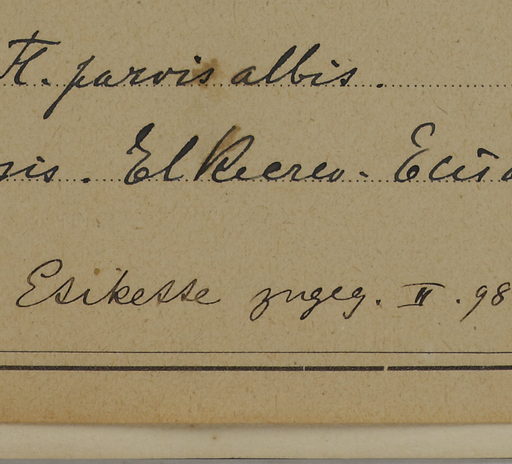 Fl. parvis albis.
sis. El Recreo - Ecua
Etikette zugeg. II. 98